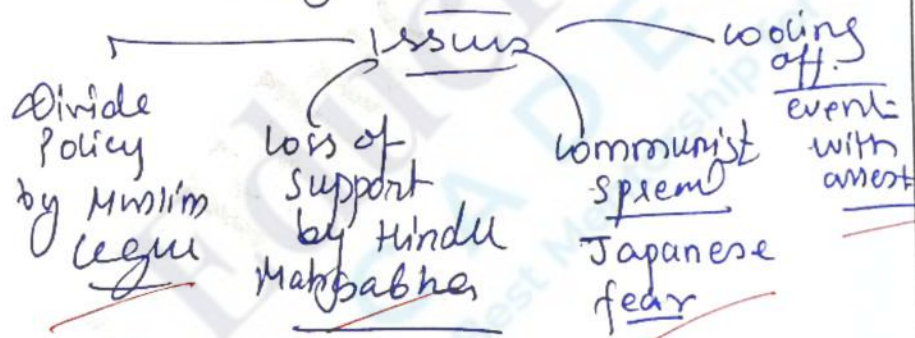 Issues
Divide
Policy
by Muslim
Legue
Loss of
support
by Hindu
Mahasabha
Communist
Japanese
fear
cooling
off.
event
with
arrest